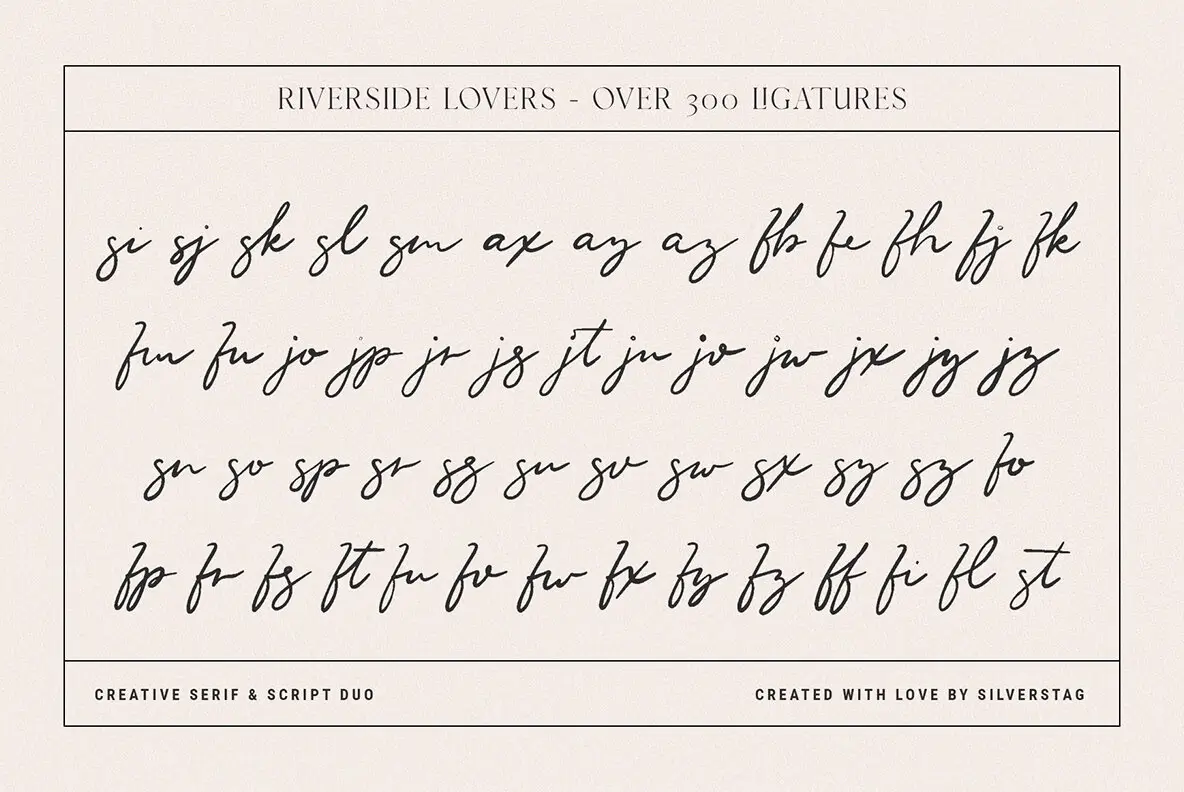 RIVERSIDE LOVERS - OVER 300 LIGATURES
si sj sk sl sm ax ay az fb fe fh fj fk
fm fn jo jp jr js jt ju jv jw jx jy jz
sn so sp sr ss su sv sw sx sy sz fo
fp fr fs ft fu fv fw fx fy fz ff fi fl st
CREATIVE SERIF & SCRIPT DUO
CREATED WITH LOVE BY SILVERSTAG